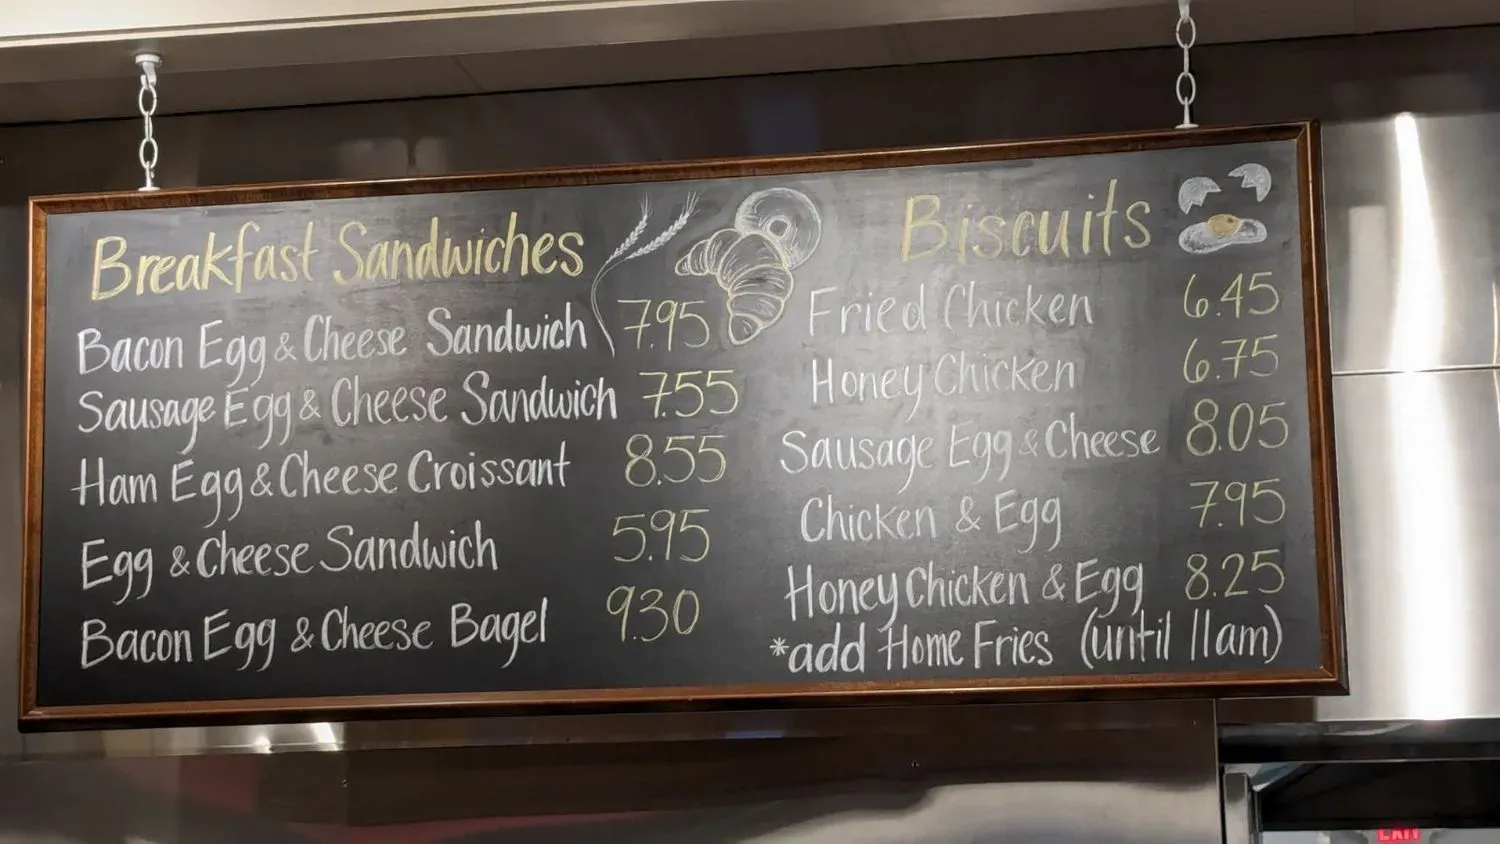 Breakfast Sandwiches
Bacon Egg & Cheese Sandwich 7.95
Sausage Egg & Cheese Sandwich 7.55
Ham Egg & Cheese Croissant 8.55
Egg & Cheese Sandwich 5.95
Bacon Egg & Cheese Bagel 9.30
Biscuits
Fried Chicken 6.45
Honey Chicken 6.75
Sausage Egg & Cheese 8.05
Chicken & Egg 7.95
Honey Chicken & Egg 8.25
*add Home Fries (until 11am)
EXIT